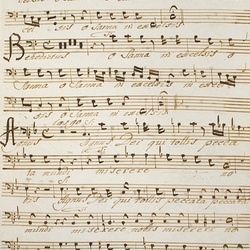 sis o sanna in excelsis o
Benedictus o sanna in excelsis o
sanna o sanna in excelsis in excel
sis o sanna in excelsis
largo
Agnus Agnus Dei qui tollis pecca
ta mundi miserere no
bis Agnus Dei qui tollis peccata peccata
mundi miserere nobis miserere no